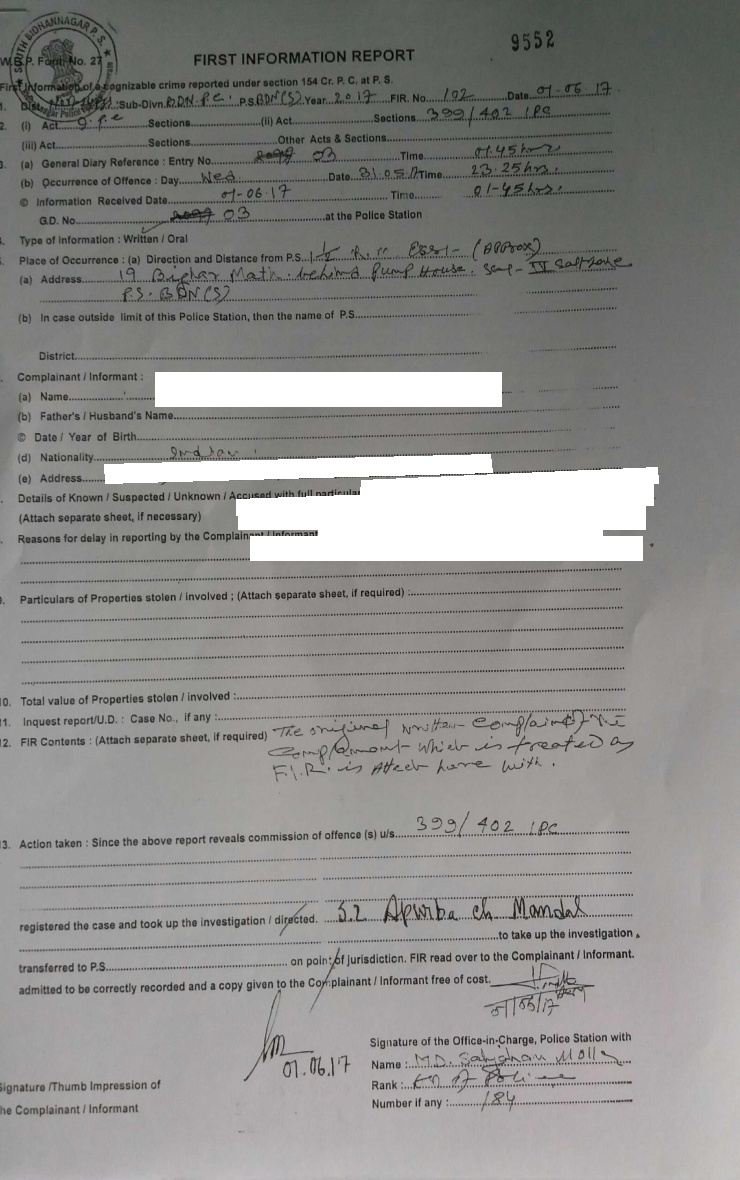 9552
SOUTH BIDHANNAGAR P.S.
W.B.P. Form No. 27
FIRST INFORMATION REPORT
First Information of a cognizable crime reported under section 154 Cr. P. C. at P. S.
1. Dist. Sub-Divn. BDN P.C. P.S. BDN(S) Year 2017 FIR. No 102 Date 01-06-17
2. (i) Act Sections (ii) Act Sections 399/402 IPC
(iii) Act Sections Other Acts & Sections
3. (a) General Diary Reference : Entry No. 03 Time 01.45 hrs
(b) Occurrence of Offence : Day Wed Date 31.05.17 Time 23.25 hrs.
© Information Received Date 01-06-17 Time 01-45 hrs.
G.D. No. 03 at the Police Station
Type of Information : Written / Oral
Place of Occurrence : (a) Direction and Distance from P.S. 1½ K.M East- (Approx)
(a) Address 19 Bighar Math. behind Pump House. Sec- IV Saltlake
P.S. BDN(S)
(b) In case outside limit of this Police Station, then the name of P.S.
District
Complainant / Informant :
(a) Name
(b) Father's / Husband's Name
© Date / Year of Birth
(d) Nationality Indian
(e) Address
Details of Known / Suspected / Unknown / Accused with full particular
(Attach separate sheet, if necessary)
Reasons for delay in reporting by the Complainant / Informant
9. Particulars of Properties stolen / involved ; (Attach separate sheet, if required) :
10. Total value of Properties stolen / involved :
11. Inquest report/U.D. : Case No., if any :
12. FIR Contents : (Attach separate sheet, if required) The original written complaint of the
Complainant which is treated as
F.I.R. is Attech here with.
13. Action taken : Since the above report reveals commission of offence (s) u/s. 399/402 IPC
registered the case and took up the investigation / directed. S.I. Apurba ch Mandal
to take up the investigation
transferred to P.S. on point of jurisdiction. FIR read over to the Complainant / Informant.
admitted to be correctly recorded and a copy given to the Complainant / Informant free of cost.
01/06/17
01.06.17
Signature of the Office-in-Charge, Police Station with
Name : M.D. Molla
Signature /Thumb Impression of
Rank : of Police
the Complainant / Informant
Number if any : 184